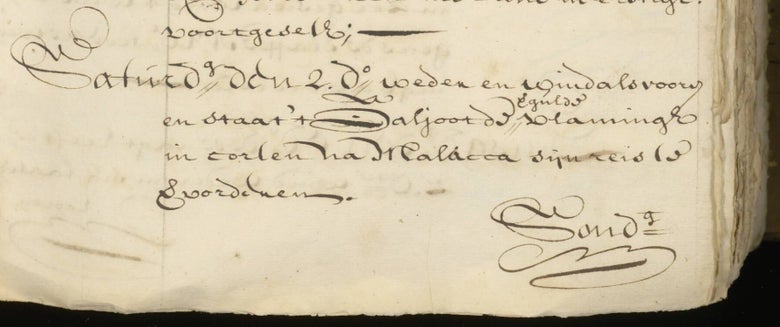 voortgeset;
Saturdg den 2. do weder en wind als voorn
en staat 't Galjoot de gulde vlamingh
in corten na Malacca sijn reis te
vorderen.
Sondg